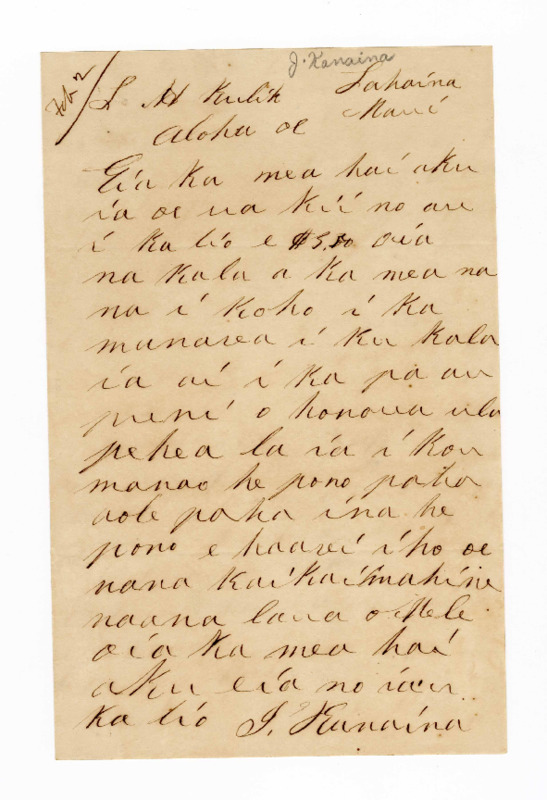 J. Kanaina
Feb 2
L H Kulik Lahaina
Aloha oe Maui
Eia ka mea hai aku
ia oe ua kii no au
i ka lio e $5.50 oia
na kala a ka mea na
na i koho i ka
manawa i ku kala
ia ai i ka pa au
puni o honoua ula
pehea la ia i kou
manao he pono paha
aole paha ina he
pono e haawi iho oe
nana kaikaimahine
naana laua o Kele
oia ka mea hai
aku eia no iau
ka lio J. Kanaina